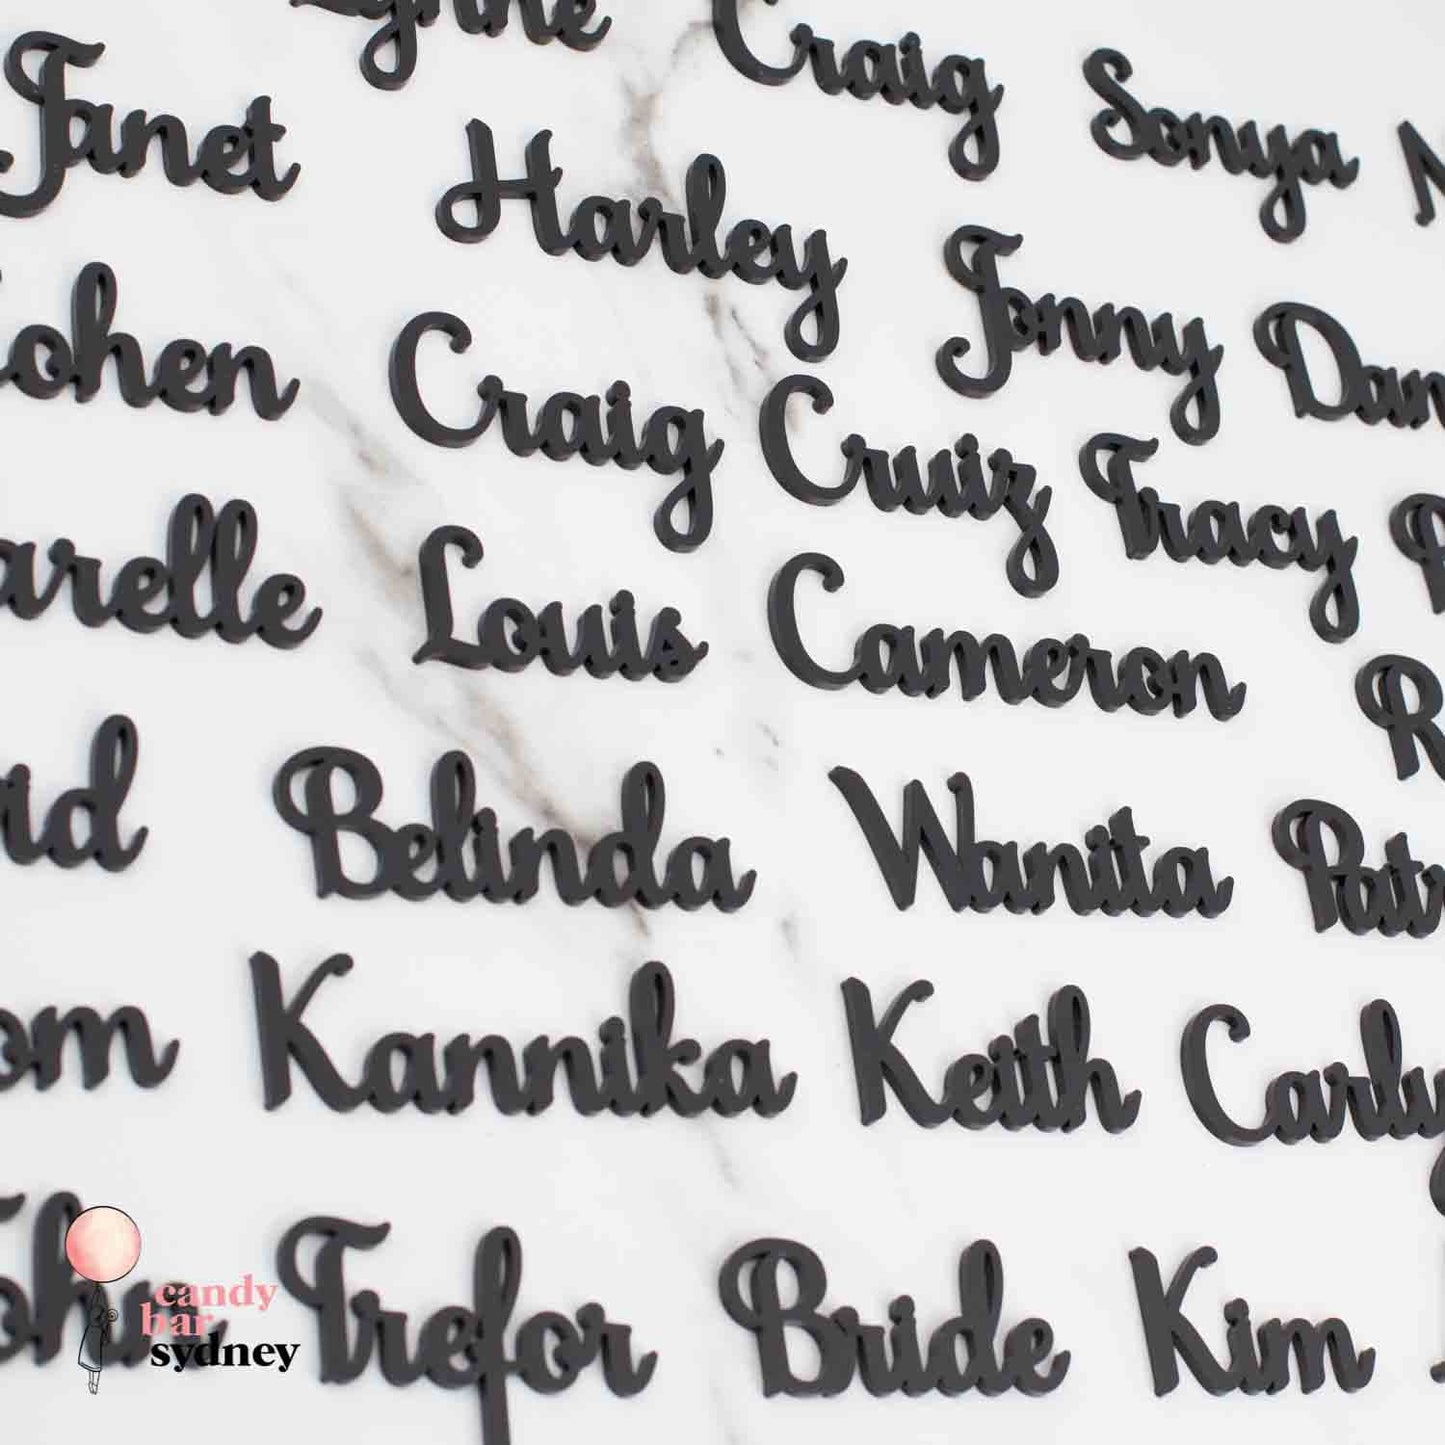 Lynne Craig Sonya
Janet Harley Jonny
Craig Cruiz Tracy
Louis Cameron
Belinda Wanita
Kannika Keith Carly
Trefor Bride Kim
candy
bar
sydney